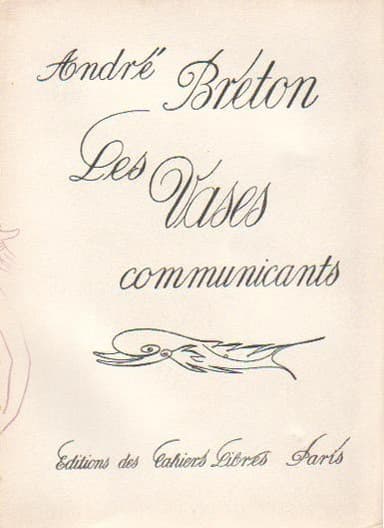 André Breton
Les Vases
communicants
Editions des Cahiers Libres Paris